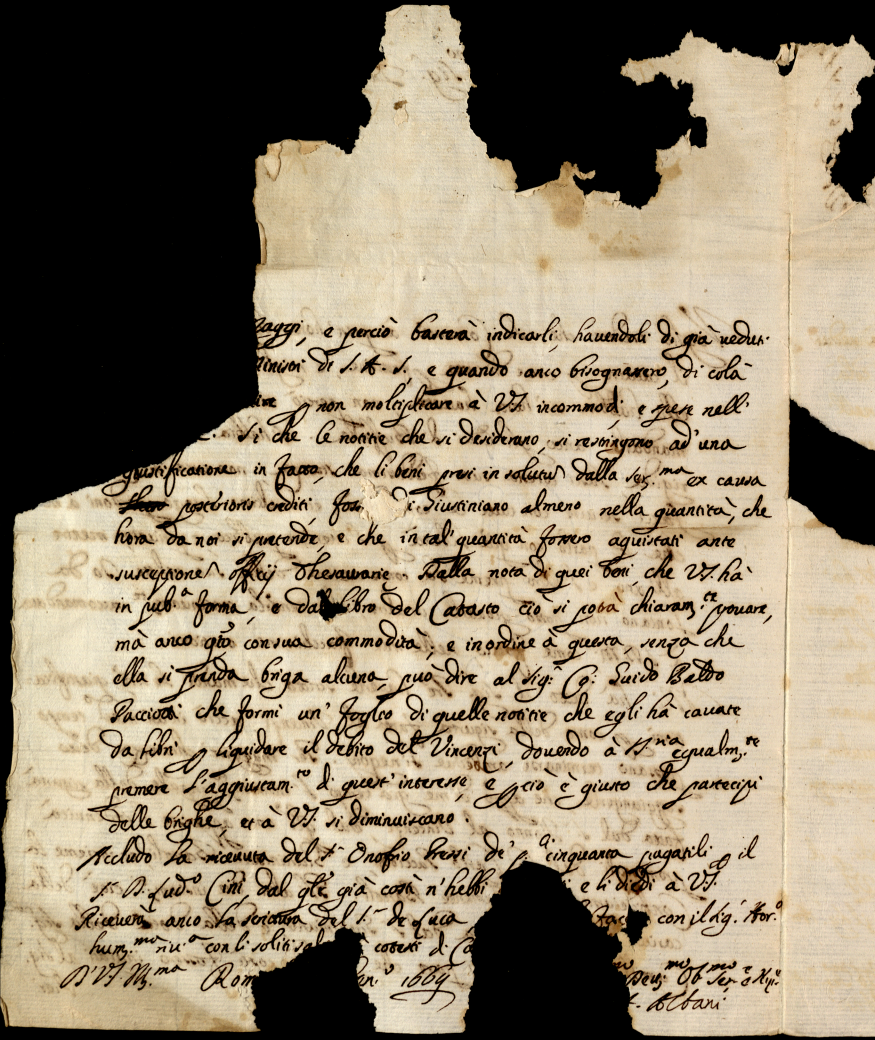 Raggi, e perciò basterà indicarli, havendoli di già veduti
Ministri di S. A. S., e quando anco bisognassero, di colà
p non moltiplicare à VS. incommodi, e spese nell'
si che le notitie che si desiderano, si restringono ad'una
giustificatione in facto, che li beni presi in solutu dalla ser.ma ex causa
posterioris crediti, Giustiniano almeno nella quantità, che
hora da noi si pretende, e che in tal' quantità fossero aquistati ante
susceptione officij Thesaurarie. Dalla nota di quei beni, che VS. hà
in pub.a forma, e dal libro del Catasto ciò si potrà chiaram.te provare,
mà anco q̃to con sua commodità, e in ordine à questa, senza che
ella si prenda briga alcuna, può dire al Sig.r Guido Baldo
Pacciotti che formi un' foglio di quelle notitie che egli hà cavate
da libri p liquidare il debito del Vincenzi, dovendo à egualm.te
premere l'aggiustam.to di quest' interesse, e pciò è giusto che partecipi
delle brighe, et à VS. si diminuiscano.
Accludo la ricevuta del S.r Onofrio de' cinquanta pagatili p il
S.r D. Lud.o Cini, dal q̃le già costì n'hebbi e li diedi à VS.
Riceverà anco la scrittura del S.r de Luca con il Sig.r
hum.mo riv.a con li soliti cotesti di
D'VS. Ill.ma Rom 1669
Albani